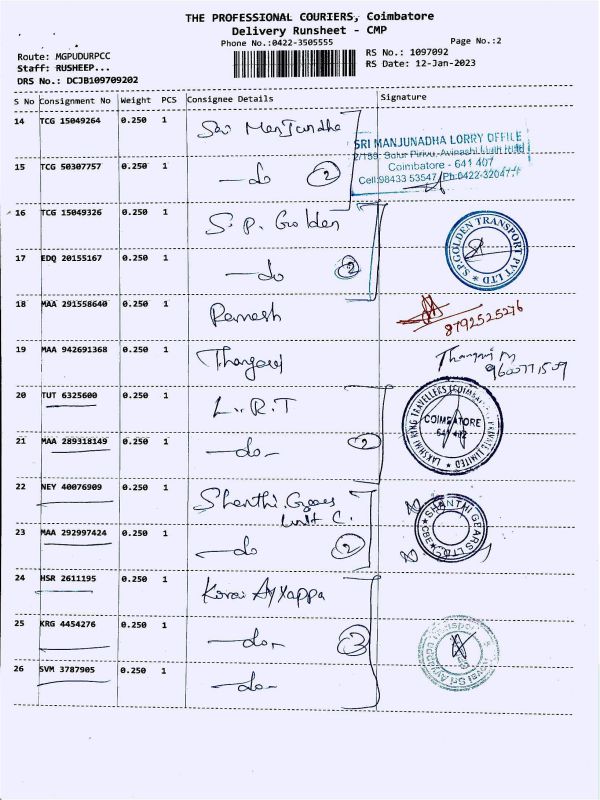 THE PROFESSIONAL COURIERS, Coimbatore
Delivery Runsheet - CMP
Phone No.:0422-3505555
Page No.:2
Route: MGPUDURPCC
Staff: RUSHEEP...
DRS No.: DCJB109709202
RS No.: 1097092
RS Date: 12-Jan-2023
S No Consignment No Weight PCS Consignee Details Signature
14 TCG 15049264 0.250 1 Sri Manjundha
SRI MANJUNADHA LORRY OFFICE
Coimbatore - 641 407
Cell:98433 53547 Ph:0422-
15 TCG 50307757 0.250 1 —do 2
16 TCG 15049326 0.250 1 S.P. Golden
S.P.GOLDEN TRANSPORT PVT LTD
17 EDQ 20155167 0.250 1 —do 2
18 MAA 291558640 0.250 1 Ramesh
8792525276
19 MAA 942691368 0.250 1
9600771509
20 TUT 6325600 0.250 1 L.R.T
LAKSHMI RING TRAVELLERS (COIMBATORE) PRIVATE LIMITED
COIMBATORE
641 402
21 MAA 289318149 0.250 1 —do- 2
22 NEY 40076909 0.250 1 Shanthi Gears
Unit C.
SHANTHI GEARS LTD
CBE
23 MAA 292997424 0.250 1 —do 2
24 HSR 2611195 0.250 1 Kovai Ayyappa
25 KRG 4454276 0.250 1 —do- 3
26 SVM 3787905 0.250 1 —do-